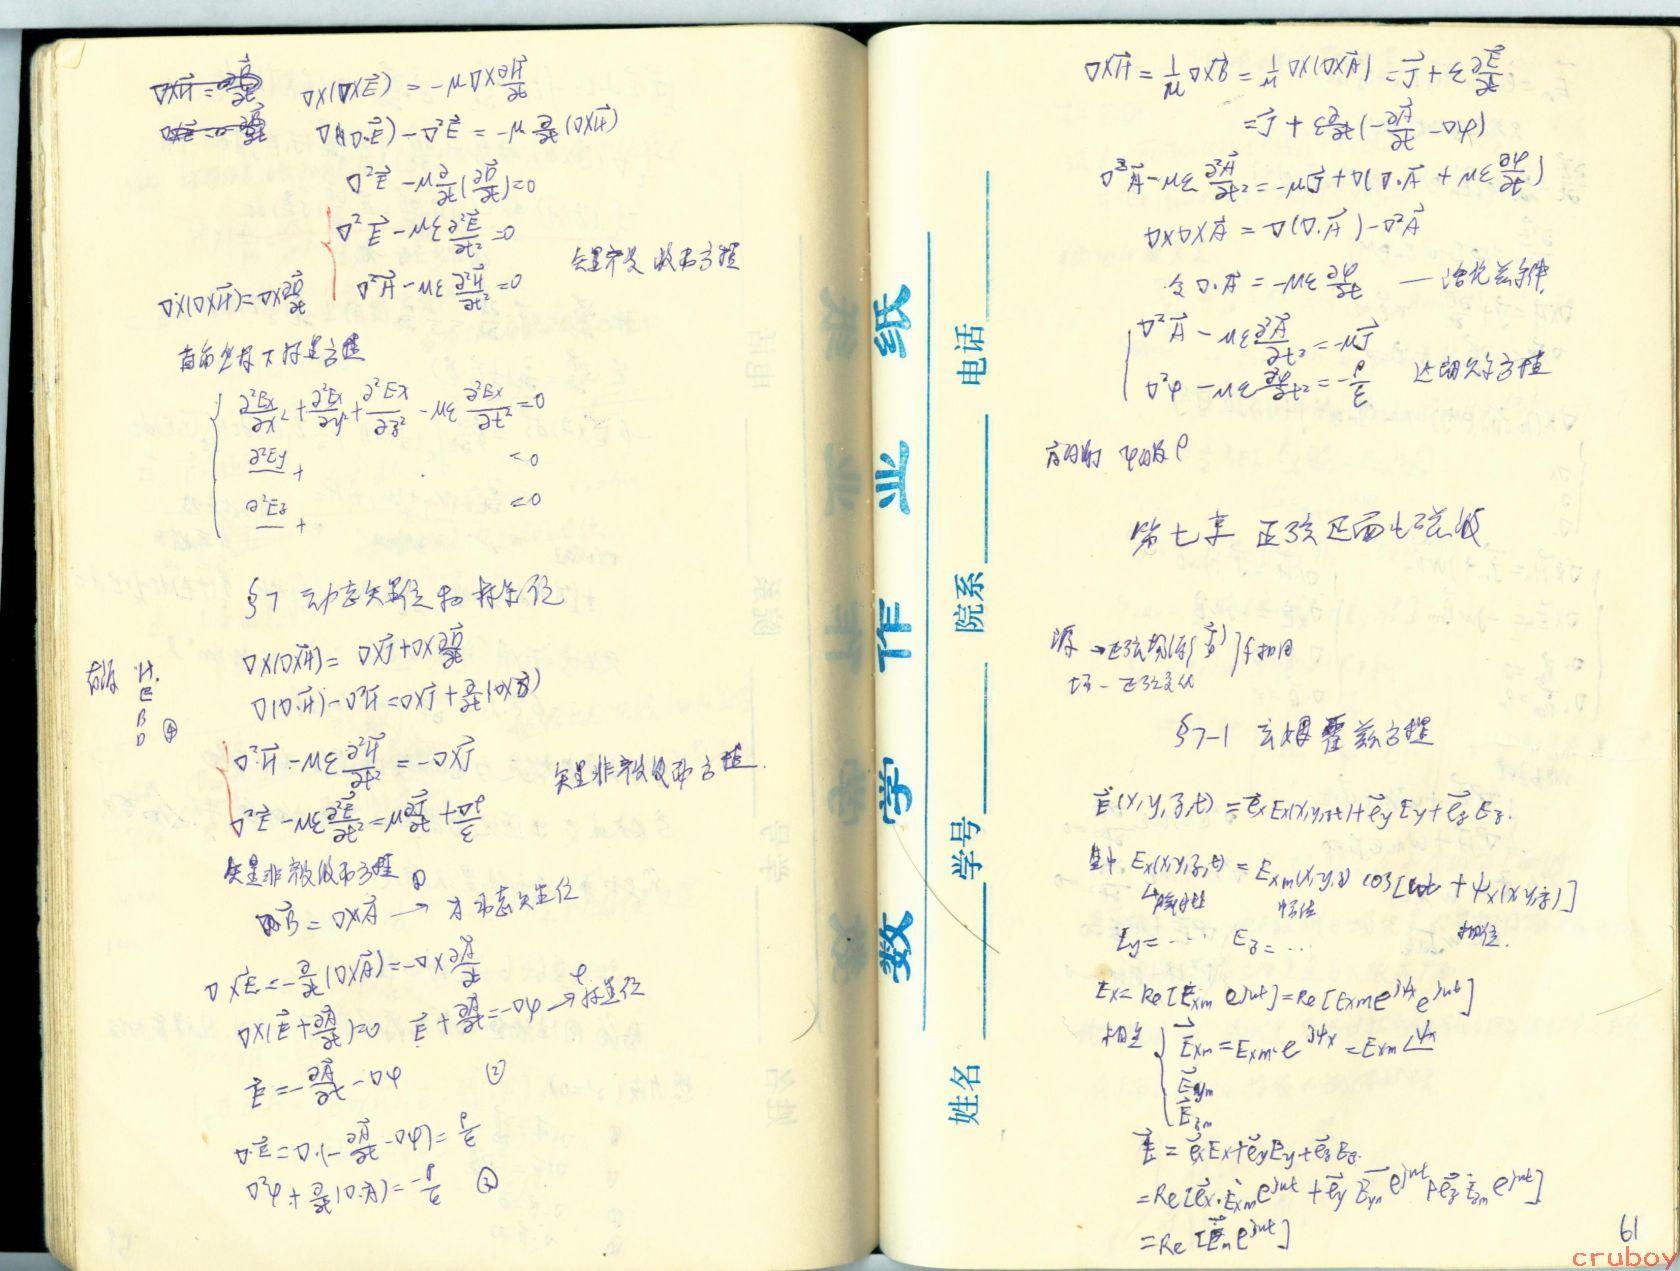 ∇×(∇×E⃗) = -μ∇×∂H⃗/∂t
∇(∇·E⃗) - ∇²E⃗ = -μ ∂/∂t (∇×H⃗)
∇²E⃗ - μ ∂/∂t (∂D⃗/∂t) = 0
∇²E⃗ - με ∂²E⃗/∂t² = 0
矢量齐次波动方程
∇×(∇×H⃗) = ∇×∂D⃗/∂t
∇²H⃗ - με ∂²H⃗/∂t² = 0
直角坐标下标量方程
∂²Ex/∂x² + ∂²Ex/∂y² + ∂²Ex/∂z² - με ∂²Ex/∂t² = 0
∂²Ey + = 0
∂²Ez + = 0
§7 动态矢量位和标量位
∇×(∇×H⃗) = ∇×J⃗ + ∇×∂D⃗/∂t
∇(∇·H⃗) - ∇²H⃗ = ∇×J⃗ + ∂/∂t (∇×D⃗)
H. E B D ④
∇²H⃗ - με ∂²H⃗/∂t² = -∇×J⃗
矢量非齐次波动方程.
∇²E⃗ - με ∂²E⃗/∂t² = μ ∂J⃗/∂t + ∇ρ/ε
矢量非齐次波动方程
B⃗ = ∇×A⃗ → 动态矢量位
∇×E⃗ = -∂/∂t (∇×A⃗) = -∇×∂A⃗/∂t
∇×(E⃗ + ∂A⃗/∂t) = 0 E⃗ + ∂A⃗/∂t = -∇φ → 标量位
E⃗ = -∂A⃗/∂t - ∇φ ②
∇·E⃗ = ∇·(-∂A⃗/∂t - ∇φ) = ρ/ε
∇²φ + ∂/∂t (∇·A⃗) = -ρ/ε ③
数学作业纸
姓名 学号 院系 电话
∇×H⃗ = 1/μ ∇×B⃗ = 1/μ ∇×(∇×A⃗) = J⃗ + ε ∂E⃗/∂t
= J⃗ + ε ∂/∂t (-∂A⃗/∂t - ∇φ)
∇²A⃗ - με ∂²A⃗/∂t² = -μJ⃗ + ∇(∇·A⃗ + με ∂φ/∂t)
∇×∇×A⃗ = ∇(∇·A⃗) - ∇²A⃗
令 ∇·A⃗ = -με ∂φ/∂t — 洛伦兹条件
∇²A⃗ - με ∂²A⃗/∂t² = -μJ⃗
∇²φ - με ∂²φ/∂t² = -ρ/ε 达朗贝尔方程
第七章 正弦平面电磁波
源 → 正弦
场 — 正弦变化
§7-1 亥姆霍兹方程
E⃗(x,y,z,t) = e⃗x Ex(x,y,z,t) + e⃗y Ey + e⃗z Ez.
其中 Ex(x,y,z,t) = Exm(x,y,z) cos[ωt + ψx(x,y,z)]
幅值
相位.
Ey = ··· Ez = ···
Ex = Re[Exm e^jωt] = Re[Exm e^jψx e^jωt]
相量 { Exm = Exm·e^jψx = Exm ∠ψx
Eym
Ezm
E⃗ = e⃗x Ex + e⃗y Ey + e⃗z Ez.
= Re[e⃗x·Exm e^jωt + e⃗y Eym e^jωt + e⃗z Ezm e^jωt]
= Re[E⃗m e^jωt]
61
cruboy